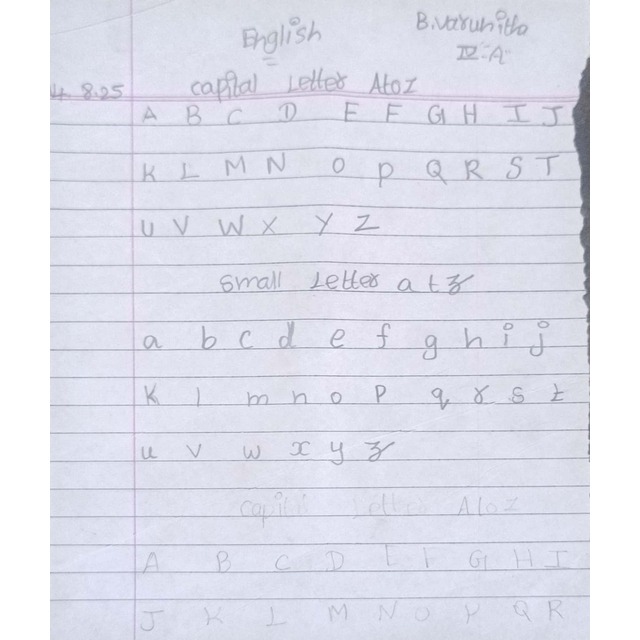 English
B.Varunitha
IV-A
4. 8.25
capital Letter A to Z
A B C D E F G H I J
K L M N O P Q R S T
U V W X Y Z
Small Letter a t z
a b c d e f g h i j
K l m n o p q r s t
u v w x y z
capital Letter A to Z
A B C D E F G H I
J K L M N O P Q R